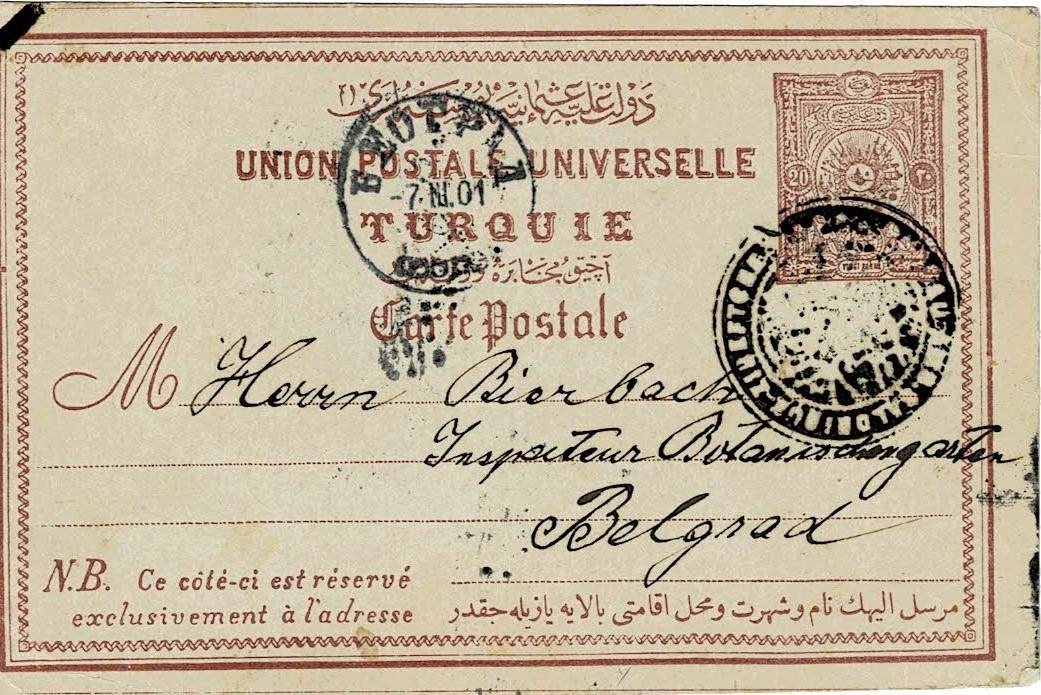 دولت عليه عثمانيه پوسته لرى
UNION POSTALE UNIVERSELLE
20 ٢٠
БЕОГРАД
-7.III.01
TURQUIE
آچيق مخابره ورقه سى
Carte Postale
M Herrn Bierbach
Inspecteur Botanischengarten
Belgrad
N.B. Ce côté-ci est réservé
exclusivement à l'adresse
مرسل اليهك نام و شهرت و محل اقامتى بالايه يازيله جقدر